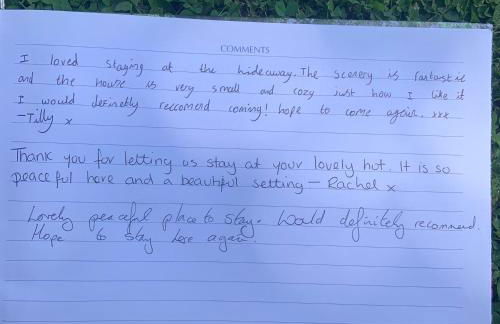 COMMENTS
I loved staying at the hideaway. The scenery is fantastic
and the house is very small and cozy just how I like it
I would definetly reccomend coming! hope to come again. xxx
-Tilly x
Thank you for letting us stay at your lovely hut. It is so
peaceful here and a beautiful setting - Rachel x
Lovely peaceful place to stay. Would definitely recommend.
Hope to stay here again.